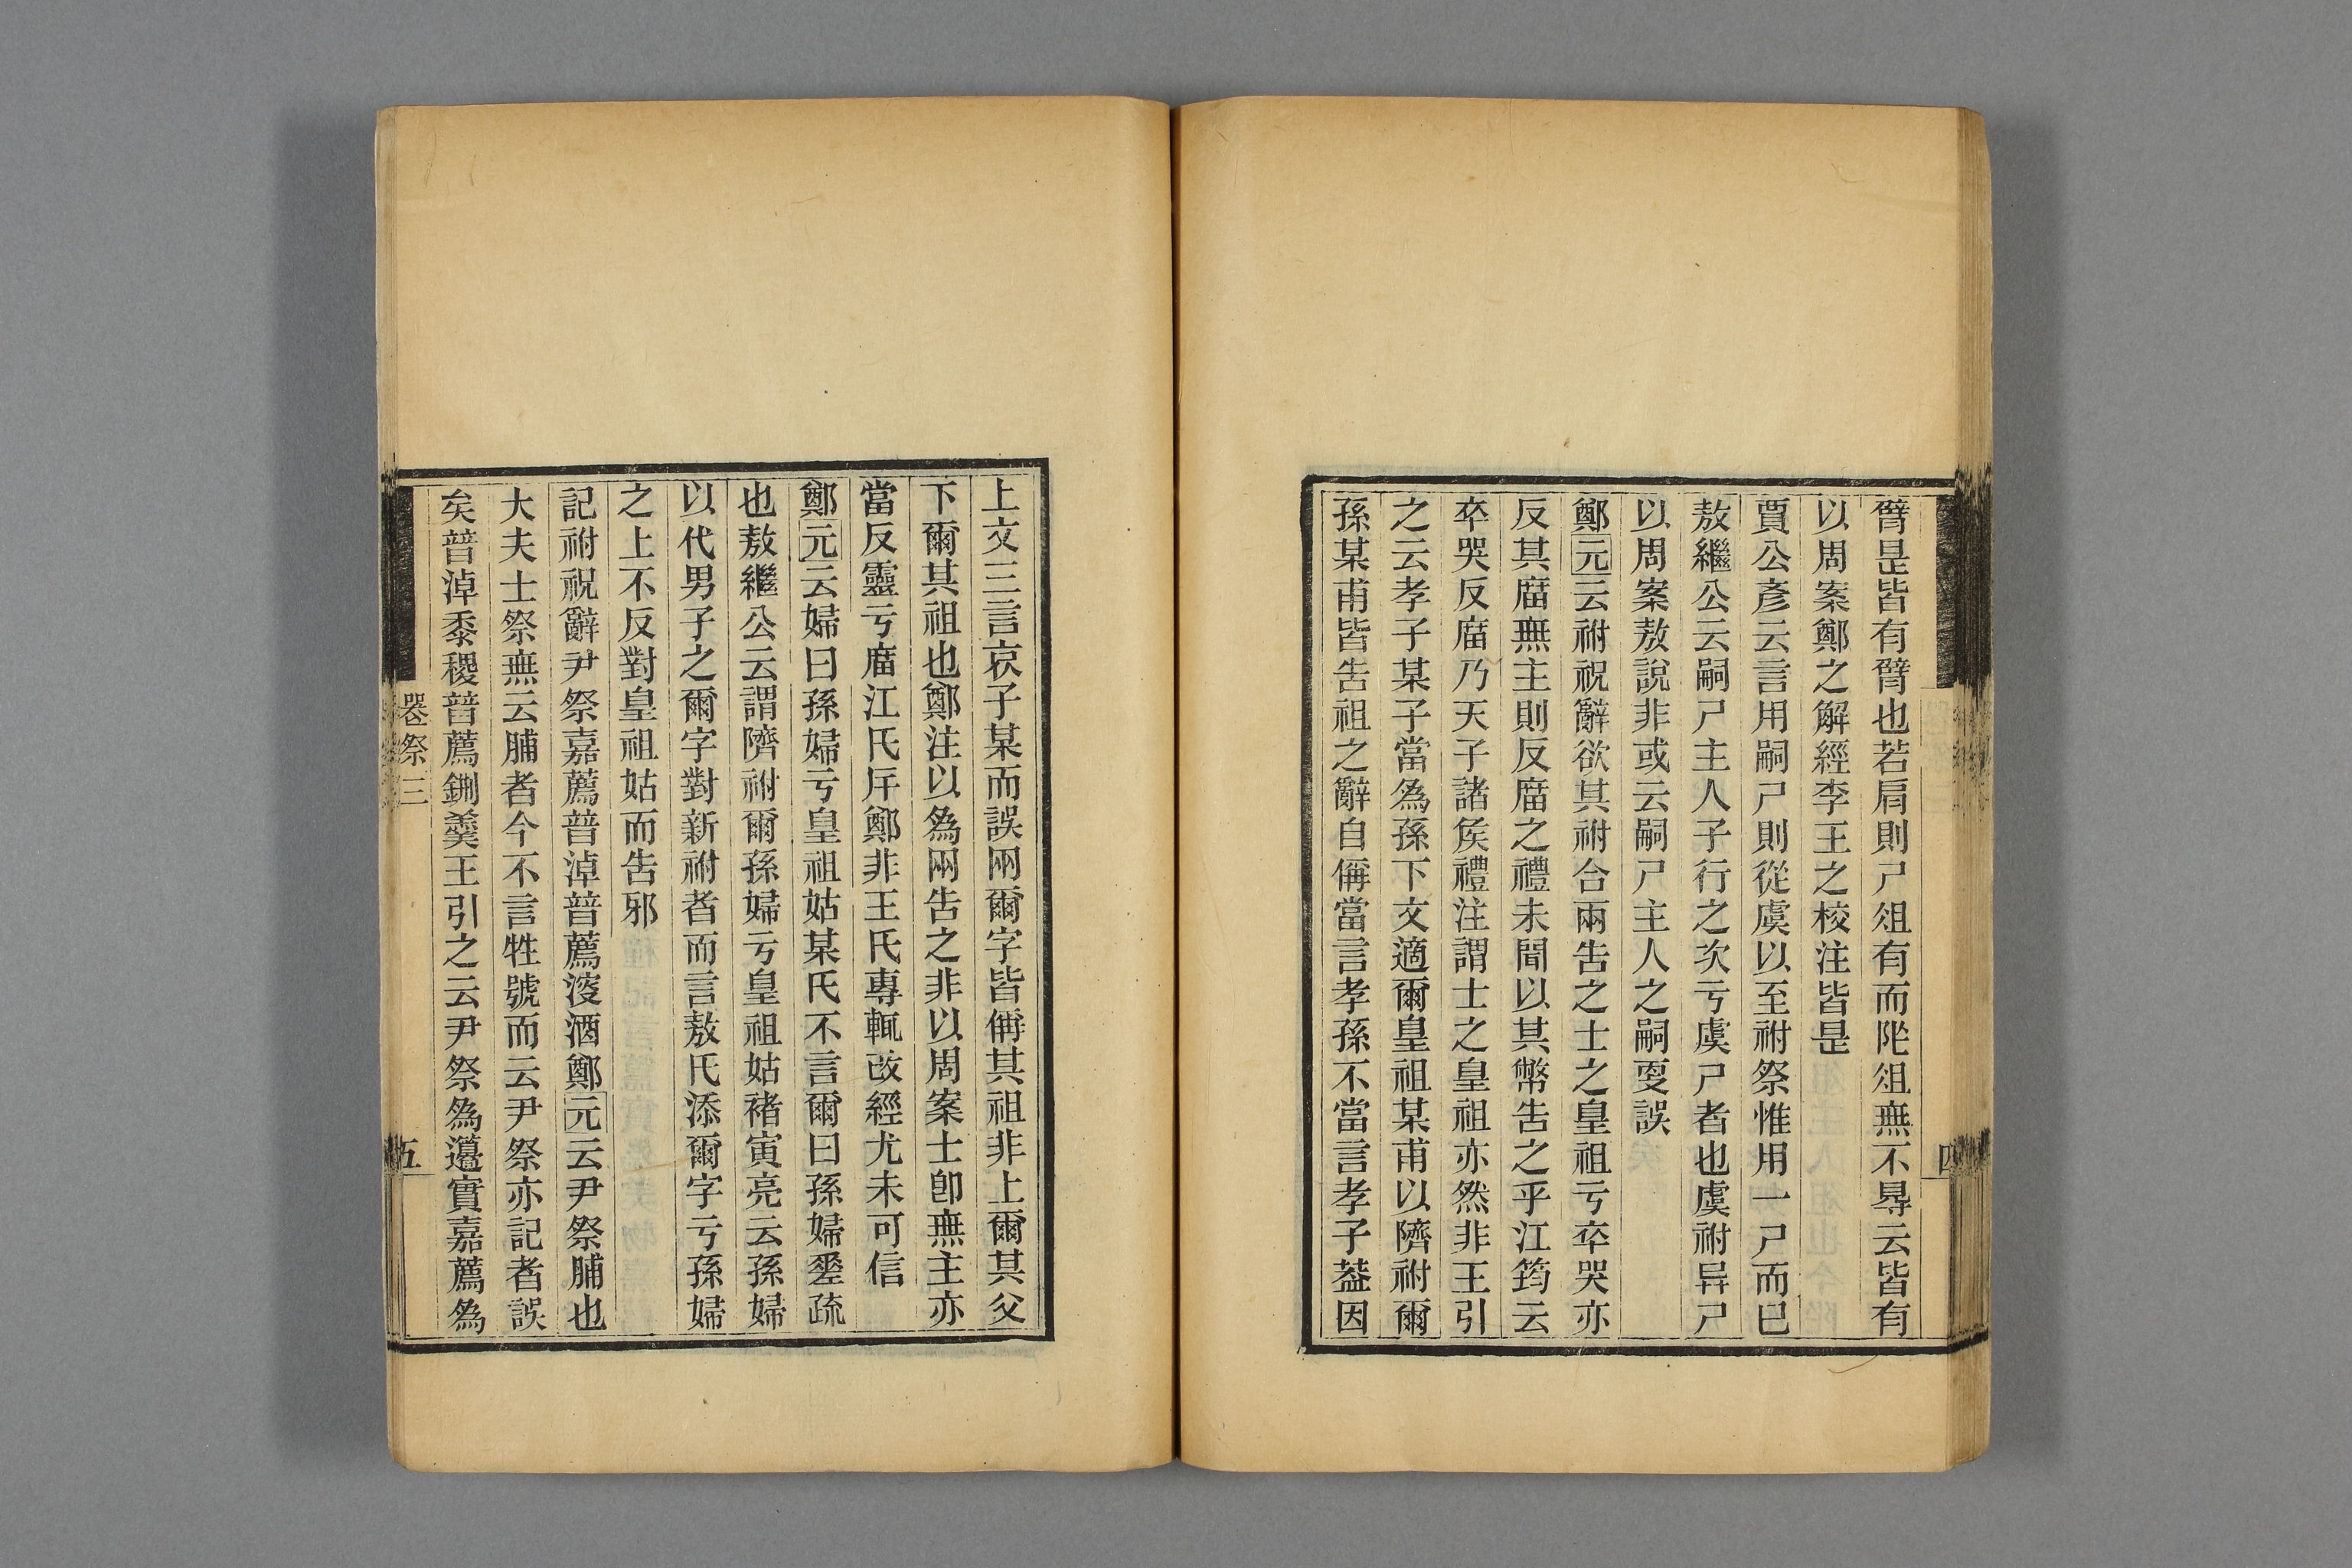 臂是皆有臂也若肩則尸俎有而阼俎無不㝵云皆有
以周案鄭之解經李王之校注皆是
賈公彥云言用嗣尸則從虞以至祔祭惟用一尸而已
敖繼公云嗣尸主人子行之次亏虞尸者也虞祔异尸
以周案敖說非或云嗣尸主人之嗣叓誤
鄭元云祔祝辭欲其祔合兩告之士之皇祖亏卒哭亦
反其庿無主則反庿之禮未聞以其幣告之乎江筠云
卒哭反庿乃天子諸矦禮注謂士之皇祖亦然非王引
之云孝子某子當爲孫下文適爾皇祖某甫以隮祔爾
孫某甫皆告祖之辭自偁當言孝孫不當言孝子葢因
四
上文三言哀子某而誤兩爾字皆偁其祖非上爾其父
下爾其祖也鄭注以爲兩告之非以周案士卽無主亦
當反靈亏庿江氏斥鄭非王氏專輒改經尤未可信
鄭元云婦曰孫婦亏皇祖姑某氏不言爾曰孫婦䟽
也敖繼公云謂隮祔爾孫婦亏皇祖姑褚寅亮云孫婦
以代男子之爾字對新祔者而言敖氏添爾字亏孫婦
之上不反對皇祖姑而告邪
記祔祝辭尹祭嘉薦普淖普薦溲酒鄭元云尹祭脯也
大夫士祭無云脯者今不言牲號而云尹祭亦記者誤
矣普淖黍稷普薦鉶羹王引之云尹祭爲籩實嘉薦爲
祭三
五